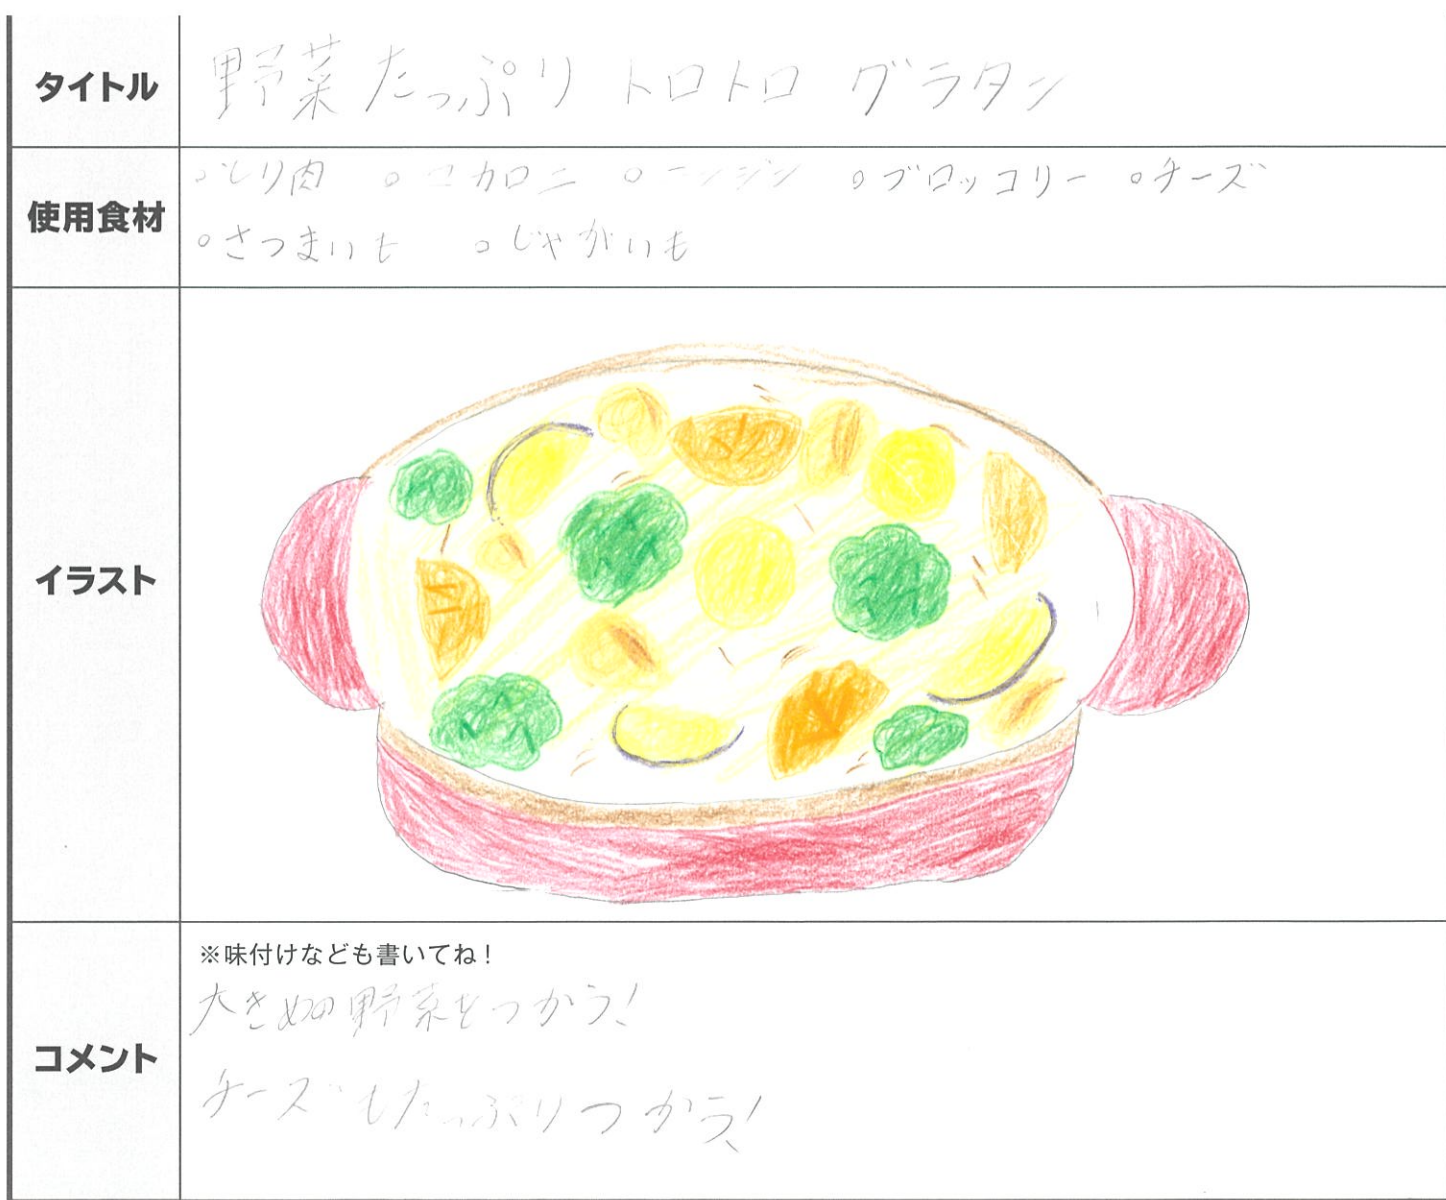 タイトル
野菜たっぷり トロトロ グラタン
使用食材
。とり肉 。マカロニ 。ニンジン 。ブロッコリー 。チーズ
。さつまいも 。じゃがいも
イラスト
コメント
※味付けなども書いてね！
大きめの野菜をつかう！
チーズもたっぷりつかう！